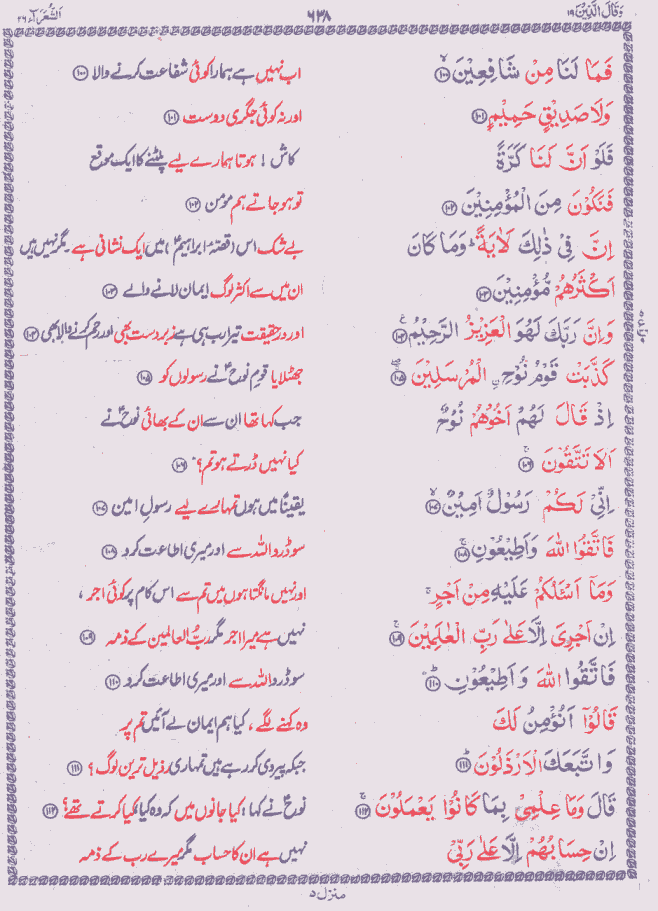 وَقَالَ الَّذِیْنَ ۱۹
۶۳۸
الشُّعَرَآء ۲۶
فَمَا لَنَا مِنْ شَافِعِیْنَ ۝۱۰۰
اب نہیں ہے ہمارا کوئی شفاعت کرنے والا ۝۱۰۰
وَلَا صَدِیْقٍ حَمِیْمٍ ۝۱۰۱
اور نہ کوئی جگری دوست ۝۱۰۱
فَلَوْ اَنَّ لَنَا كَرَّةً
کاش! ہوتا ہمارے لیے پلٹنے کا ایک موقع
فَنَكُوْنَ مِنَ الْمُؤْمِنِیْنَ ۝۱۰۲
تو ہو جاتے ہم مومن ۝۱۰۲
اِنَّ فِیْ ذٰلِكَ لَاٰیَةً ؕ وَمَا كَانَ
بے شک اس (قصۂ ابراہیمؑ) میں ایک نشانی ہے۔ مگر نہیں ہیں
اَكْثَرُهُمْ مُّؤْمِنِیْنَ ۝۱۰۳
ان میں سے اکثر لوگ ایمان لانے والے ۝۱۰۳
وَاِنَّ رَبَّكَ لَهُوَ الْعَزِیْزُ الرَّحِیْمُ ۝۱۰۴
اور درحقیقت تیرا رب ہی ہے زبردست بھی اور رحم کرنے والا بھی ۝۱۰۴
كَذَّبَتْ قَوْمُ نُوْحِ ِۨ الْمُرْسَلِیْنَ ۝۱۰۵
جھٹلایا قومِ نوحؑ نے رسولوں کو ۝۱۰۵
اِذْ قَالَ لَهُمْ اَخُوْهُمْ نُوْحٌ
جب کہا تھا ان سے ان کے بھائی نوحؑ نے
اَلَا تَتَّقُوْنَ ۝۱۰۶
کیا نہیں ڈرتے ہو تم؟ ۝۱۰۶
اِنِّیْ لَكُمْ رَسُوْلٌ اَمِیْنٌ ۝۱۰۷
یقیناً میں ہوں تمہارے لیے رسولِ امین ۝۱۰۷
فَاتَّقُوا اللّٰهَ وَاَطِیْعُوْنِ ۝۱۰۸
سو ڈرو اللہ سے اور میری اطاعت کرو ۝۱۰۸
وَمَاۤ اَسْئَلُكُمْ عَلَیْهِ مِنْ اَجْرٍ ۚ
اور نہیں مانگتا ہوں میں تم سے اس کام پر کوئی اجر،
اِنْ اَجْرِیَ اِلَّا عَلٰی رَبِّ الْعٰلَمِیْنَ ۝۱۰۹
نہیں ہے میرا اجر مگر ربُّ العالمین کے ذمہ ۝۱۰۹
فَاتَّقُوا اللّٰهَ وَاَطِیْعُوْنِ ۝۱۱۰
سو ڈرو اللہ سے اور میری اطاعت کرو ۝۱۱۰
قَالُوْۤا اَنُؤْمِنُ لَكَ
وہ کہنے لگے، کیا ہم ایمان لے آئیں تم پر
وَاتَّبَعَكَ الْاَرْذَلُوْنَ ۝۱۱۱
جبکہ پیروی کر رہے ہیں تمہاری رذیل ترین لوگ؟ ۝۱۱۱
قَالَ وَمَا عِلْمِیْ بِمَا كَانُوْا یَعْمَلُوْنَ ۝۱۱۲
نوحؑ نے کہا: کیا جانوں میں کہ وہ کیا کیا کرتے تھے؟ ۝۱۱۲
اِنْ حِسَابُهُمْ اِلَّا عَلٰی رَبِّیْ
نہیں ہے ان کا حساب مگر میرے رب کے ذمہ
منزل ۵